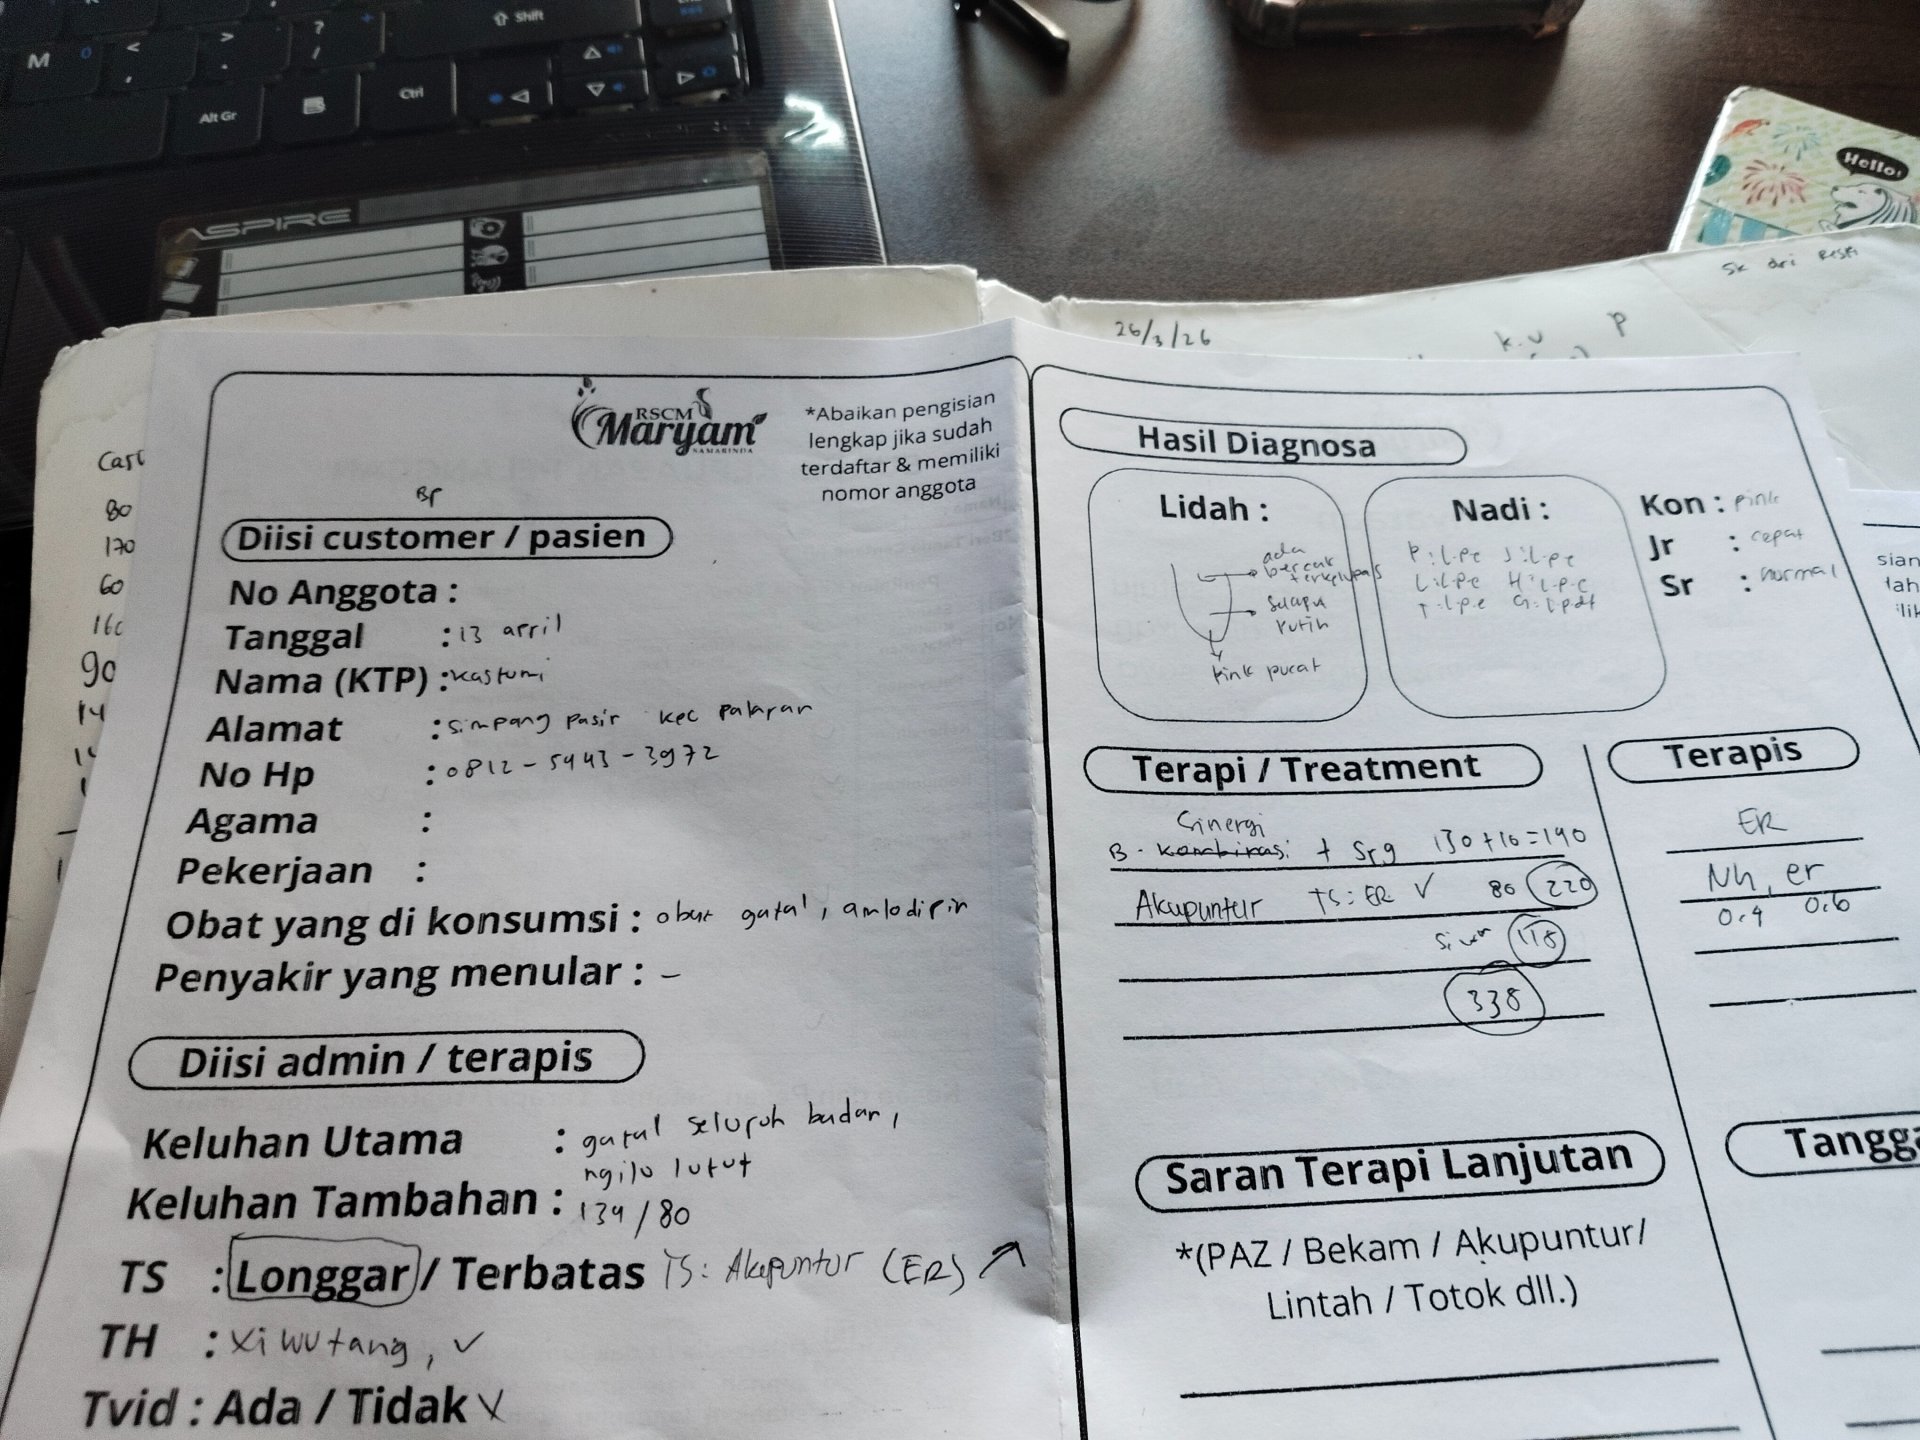 M
<
,
>
.
?
/
Shift
Alt Gr
Ctrl
ASPIRE
Hello!
26/3/26
k.u
P
80
170
60
90
RSCM
Maryam
SAMARINDA
*Abaikan pengisian
lengkap jika sudah
terdaftar & memiliki
nomor anggota
Diisi customer / pasien
No Anggota :
Tanggal : 13 april
Nama (KTP) : kastumi
Alamat : simpang pasir kec palaran
No Hp : 0812-5443-3972
Agama :
Pekerjaan :
Obat yang di konsumsi : obat gatal, amlodipin
Penyakir yang menular : -
Diisi admin / terapis
Keluhan Utama : gatal seluruh badan,
ngilu lutut
Keluhan Tambahan : 134/80
TS : Longgar / Terbatas TS: Akupuntur (ER)
TH : Xi wu tang, ✓
Tvid : Ada / Tidak X
Hasil Diagnosa
Lidah :
ada
bercak
terkelupas
selaput
putih
pink pucat
Nadi :
P : l.p.c J : l.p.c
L : l.p.c H : l.p.c
T : l.p.c
Kon : pink
Jr : cepat
Sr : normal
Terapi / Treatment
Sinergi
B - kombinasi + Srg 130+10=140
Akupuntur TS: ER ✓ 80 220
118
338
Terapis
ER
Nh, er
0.4 0.6
Saran Terapi Lanjutan
*(PAZ / Bekam / Akupuntur/
Lintah / Totok dll.)
Tangga